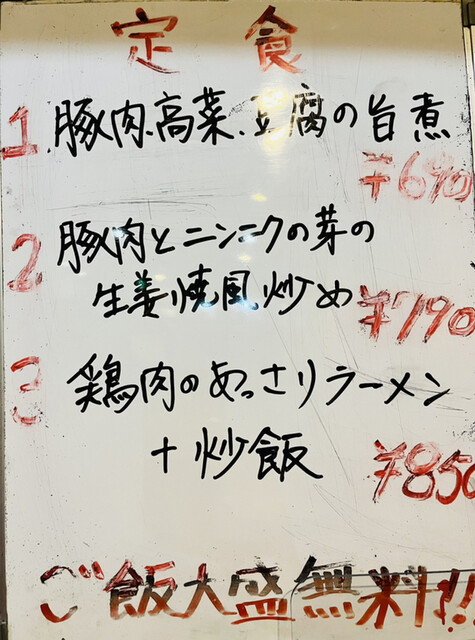 定食
1. 豚肉、高菜、豆腐の旨煮
¥690
2 豚肉とニンニクの芽の
生姜焼風炒め ¥790
3 鶏肉のあっさりラーメン
+炒飯
¥850
ご飯大盛無料!!